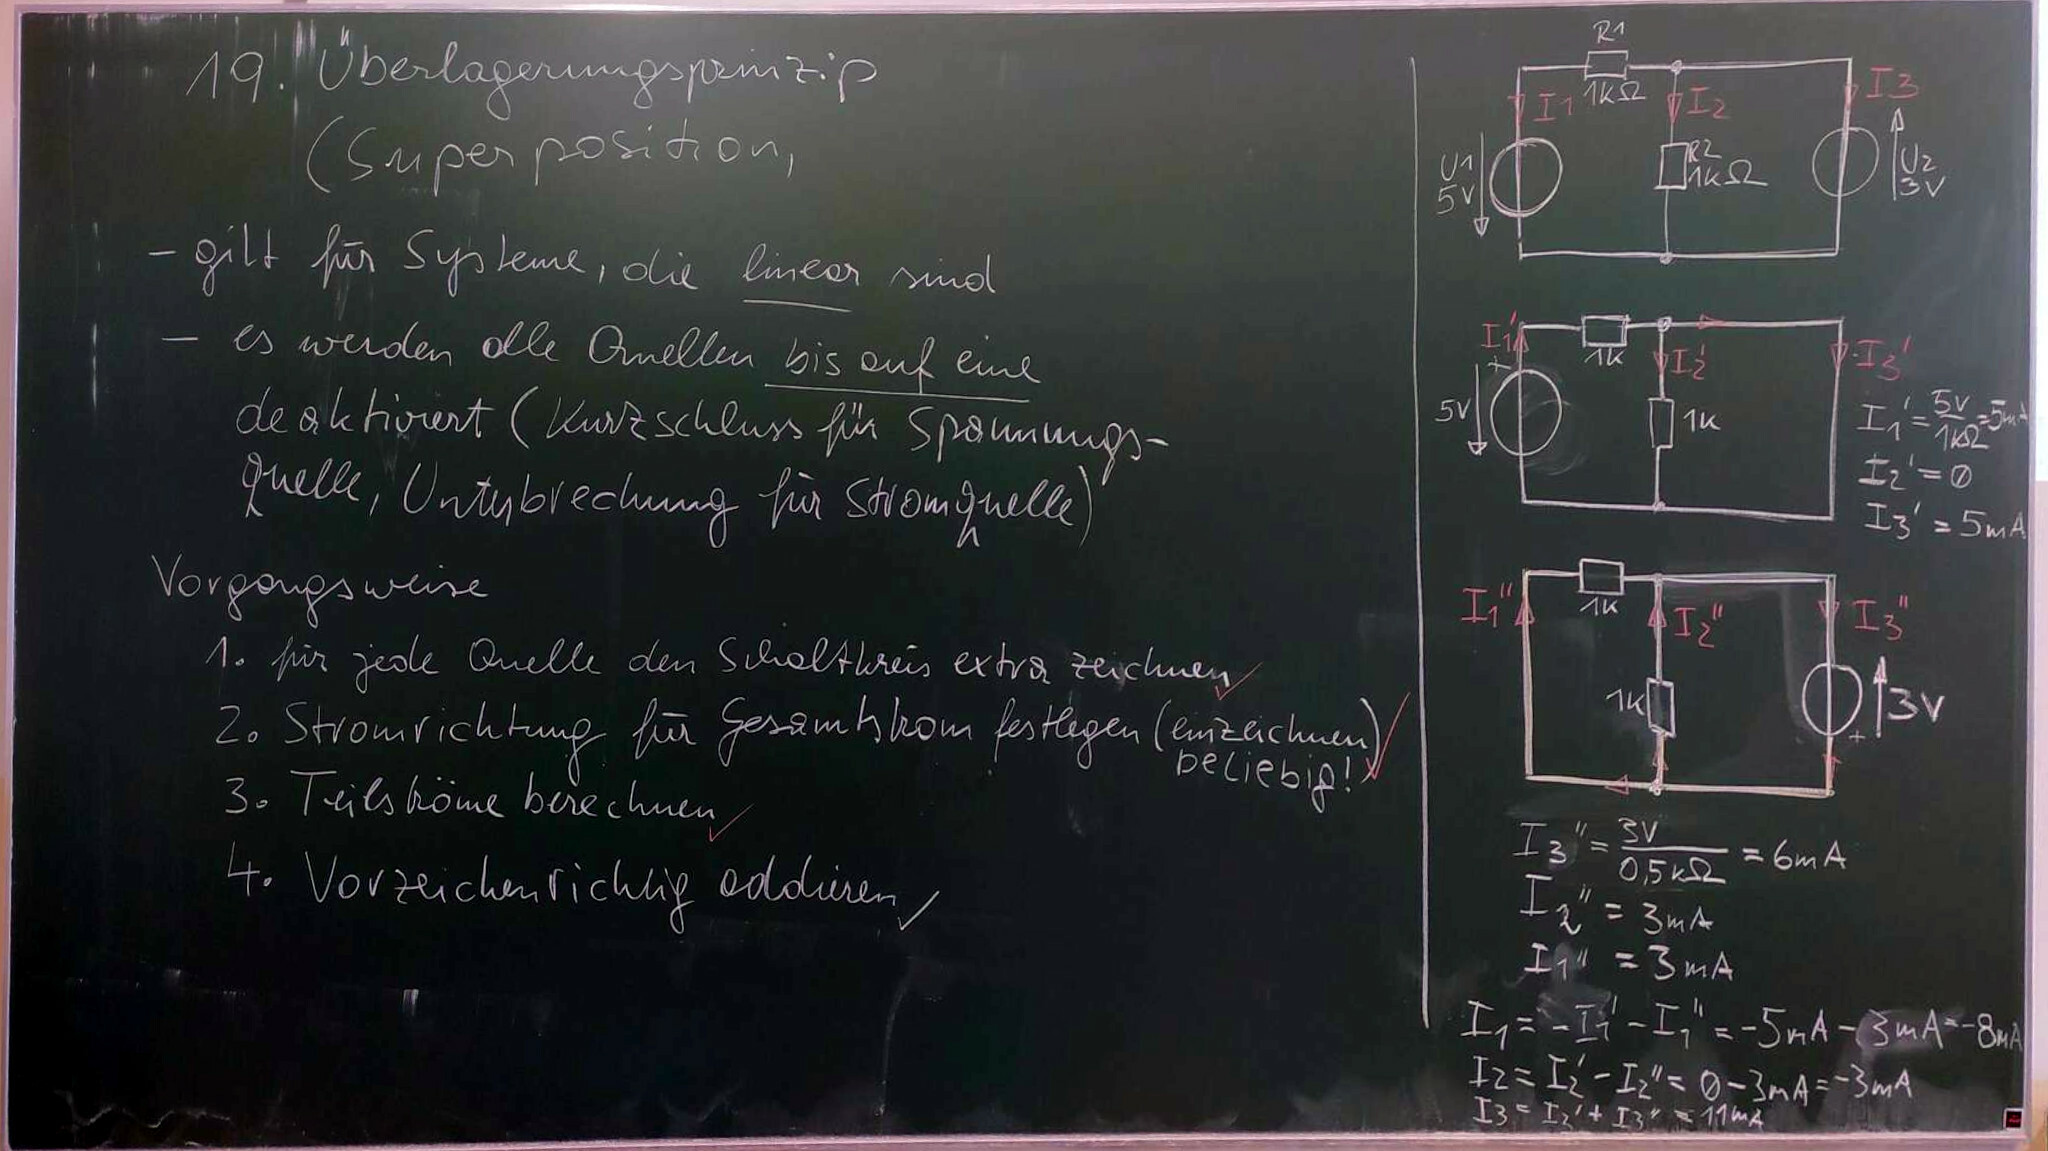 19. Überlagerungsprinzip
(Superposition,
- gilt für Systeme, die linear sind
- es werden alle Quellen bis auf eine
deaktiviert (Kurzschluss für Spannungs-
quelle, Unterbrechung für Stromquelle)
Vorgangsweise
1. für jede Quelle den Schaltkreis extra zeichnen
2. Stromrichtung für Gesamtstrom festlegen (einzeichnen)
beliebig!
3. Teilströme berechnen
4. Vorzeichenrichtig addieren
R1
1kΩ
I1
I2
I3
U1
5V
R2
1kΩ
U2
3V
I1'
+
1k
I2'
I3'
5V
1k
I1' = 5V/1kΩ = 5mA
I2' = 0
I3' = 5mA
I1''
1k
I2''
I3''
1k
3V
+
I3'' = 3V/0,5kΩ = 6mA
I2'' = 3mA
I1'' = 3mA
I1 = -I1' - I1'' = -5mA - 3mA = -8mA
I2 = I2' - I2'' = 0 - 3mA = -3mA
I3 = I3' + I3'' = 11mA